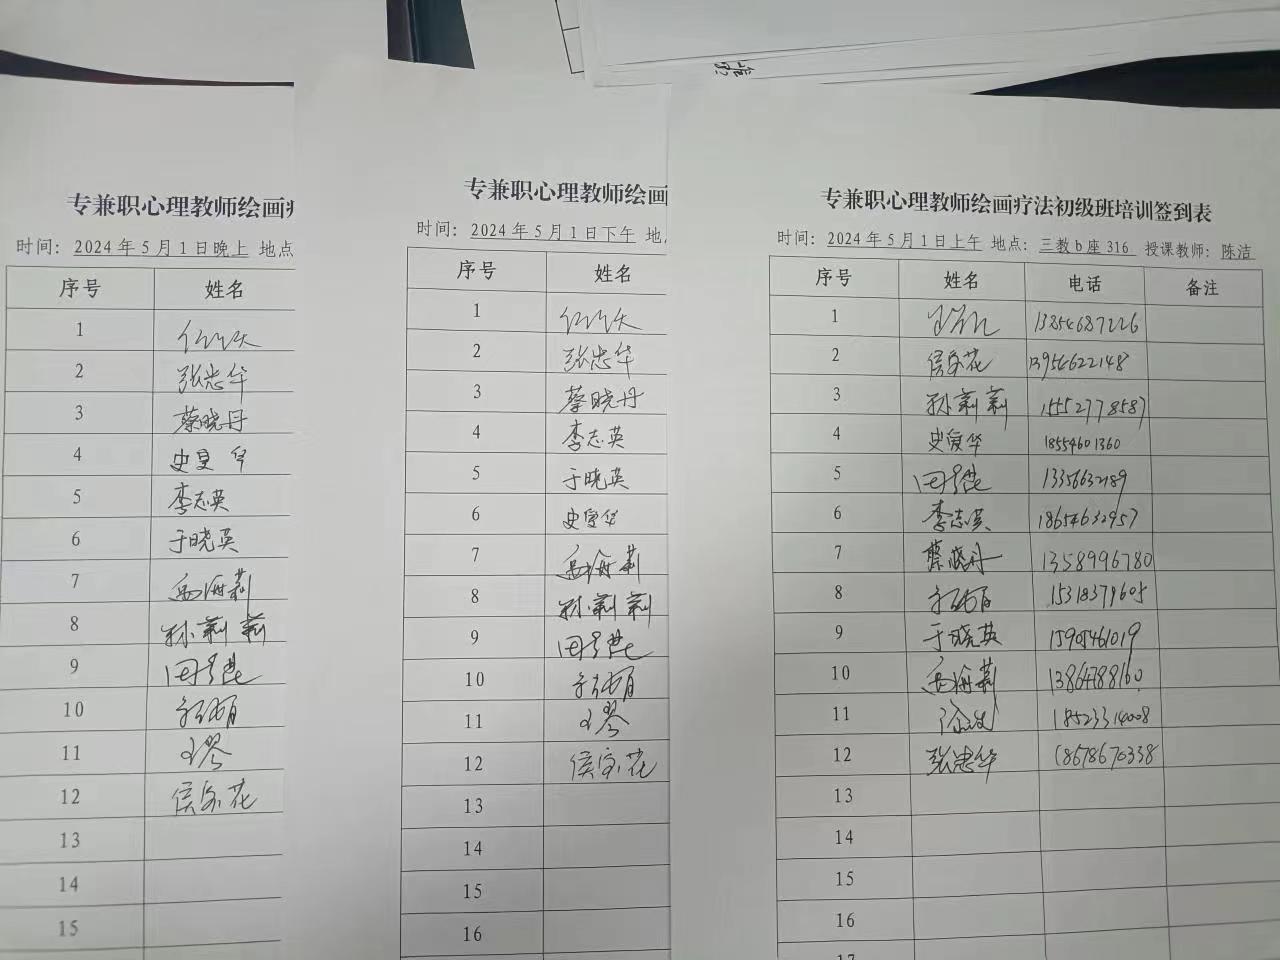 专兼职心理教师绘画疗
时间：2024年5月1日晚上 地点
序号 姓名
1
2 张忠华
3 蔡晓丹
4 史复华
5 李志英
6 于晓英
7
8 孙莉莉
9
10
11
12 侯家花
13
14
15
专兼职心理教师绘画
时间：2024年5月1日下午 地点
序号 姓名
1
2 张忠华
3 蔡晓丹
4 李志英
5 于晓英
6 史复华
7
8 孙莉莉
9
10
11
12 侯家花
13
14
15
16
专兼职心理教师绘画疗法初级班培训签到表
时间：2024年5月1日上午 地点：三教b座316 授课教师：陈洁
序号 姓名 电话 备注
1 13854687226
2 侯家花 13954622148
3 孙莉莉 15552778587
4 史复华 18554601360
5 13356632189
6 李志英 18654632957
7 蔡晓丹 13589996780
8 15318379605
9 于晓英 15905461019
10 13864788160
11 18523314008
12 张忠华 18678670338
13
14
15
16
17